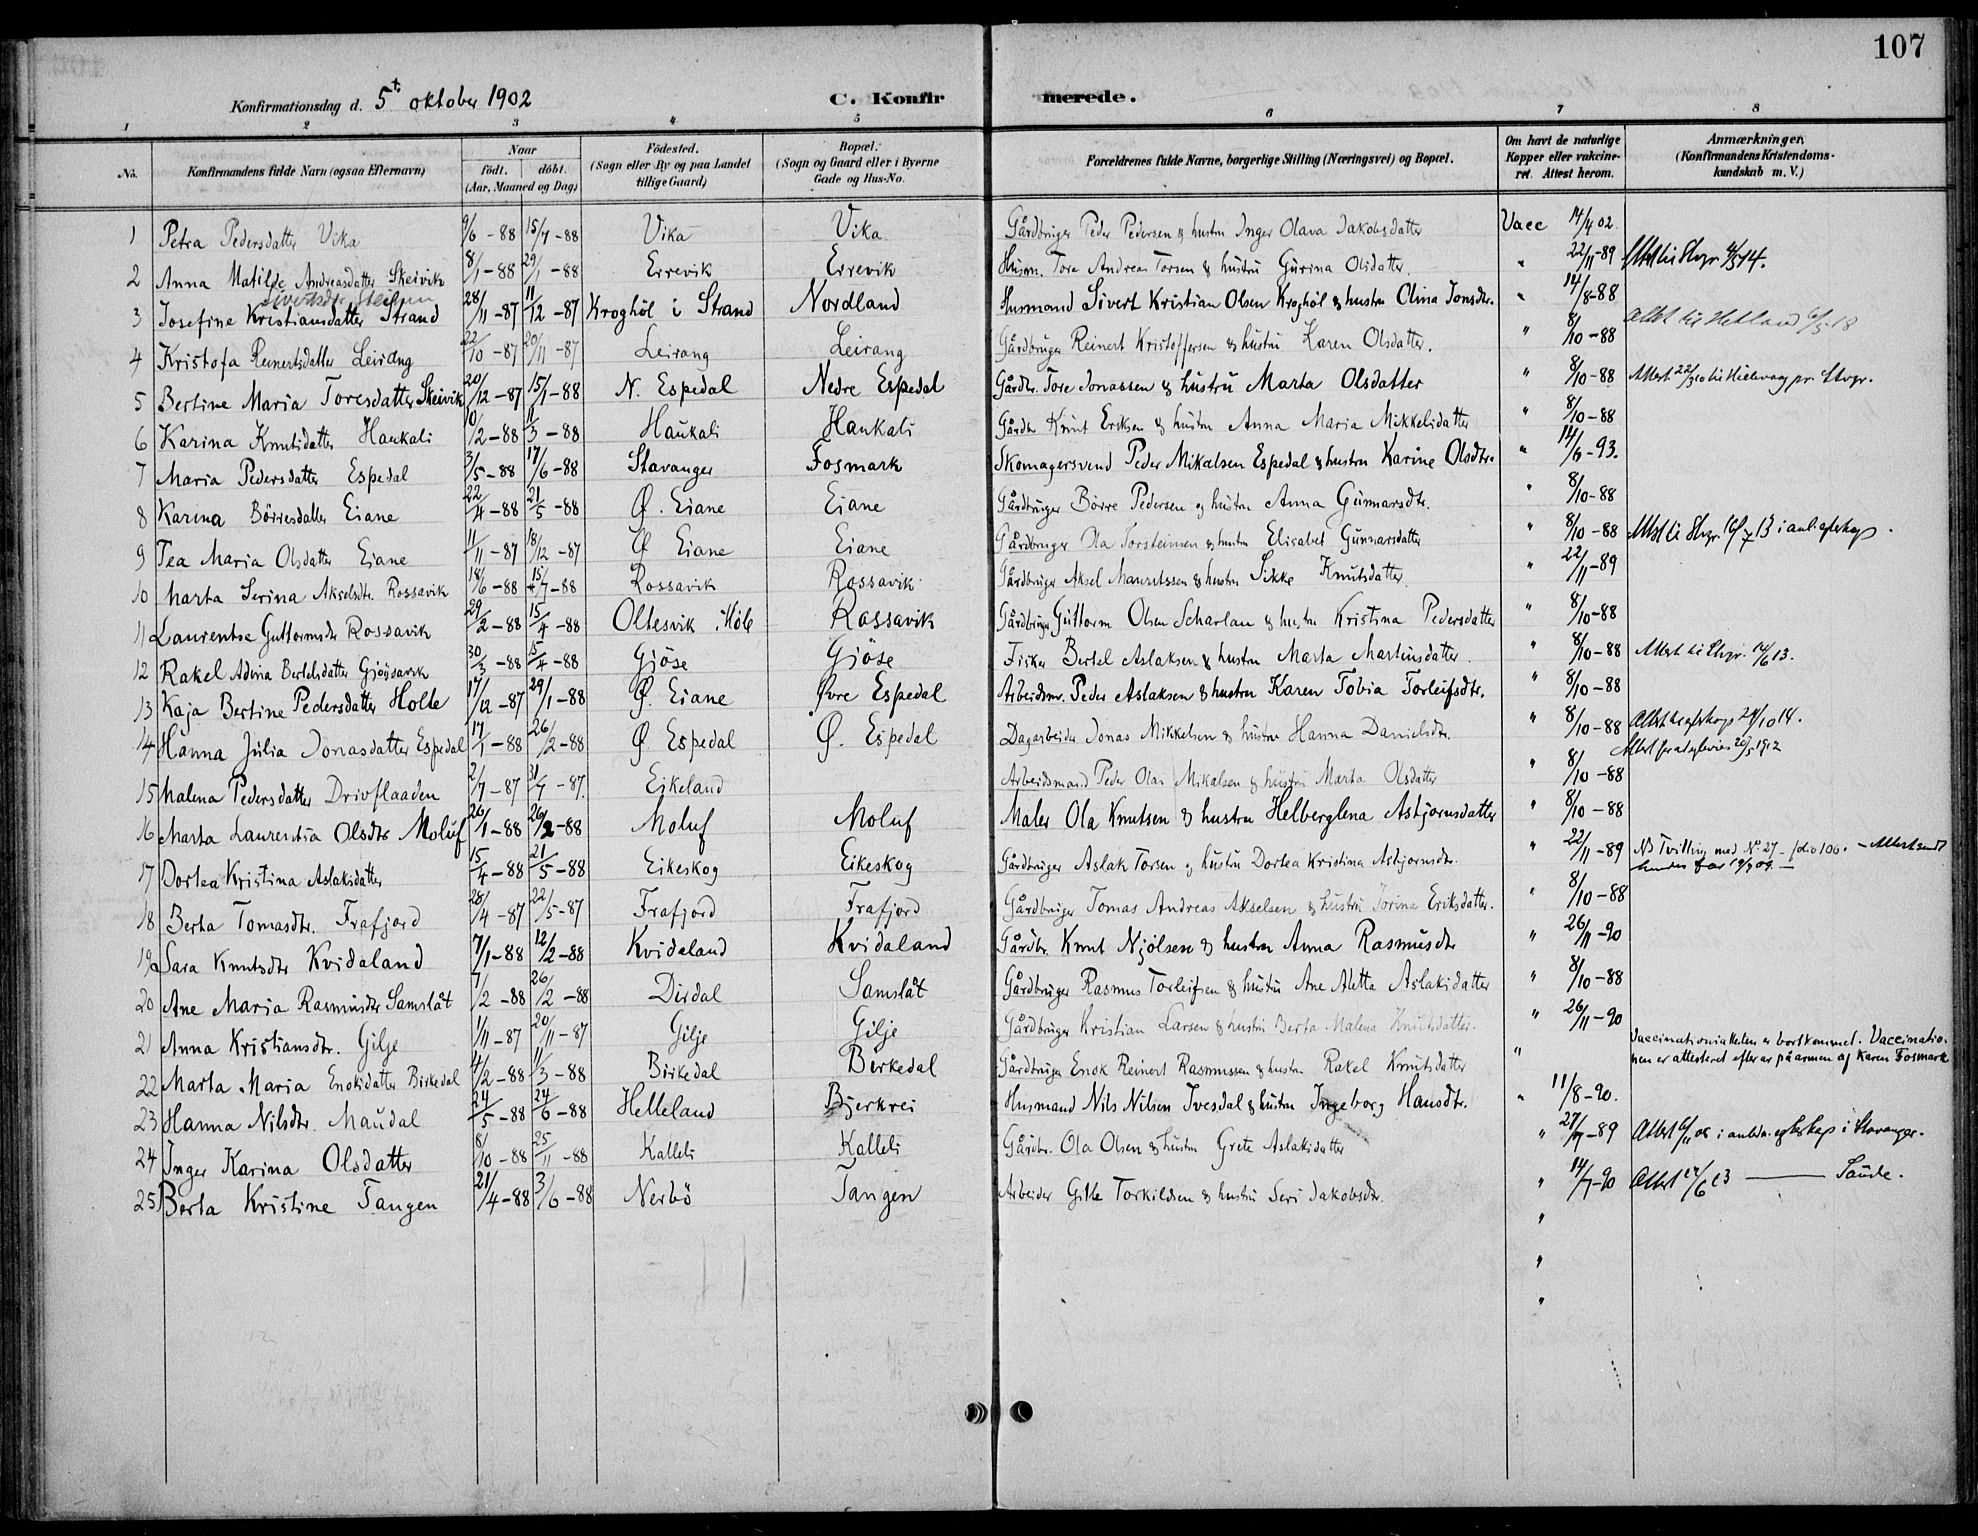 107
Konfirmationsdag d. 5t oktober 1902 C. Konfirmerede.
1 2 3 4 5 6 7 8
No. Konfirmandens fulde Navn (ogsaa Efternavn) Naar født. døbt. (Aar, Maaned og Dag) Fødested. (Sogn eller By og paa Landet tillige Gaard) Bopæl. (Sogn og Gaard eller i Byerne Gade og Hus-No. Forældrenes fulde Navne, borgerlige Stilling (Næringsvei) og Bopæl. Om havt de naturlige Kopper eller vakcineret. Attest herom. Anmærkninger. (Konfirmandens Kristendomskundskab m. V.)
1 Petra Pedersdatter Vika 9/6-88 15/7-88 Vika Vika Gårdbruger Peder Pedersen & hustru Inger Olava Jakobsdatter Vacc 14/4 02
2 Anna Matilde Andreasdatter Skeivik 8/1-88 29/1-88 Errevik Errevik Husm. Tore Andreas Torsen & hustru Gurina Olsdatter. " 22/11-89
3 Josefine Kristiansdatter Strand 28/11-87 11/12-87 Kroghöl i Strand Nordland Husmand Sivert Kristian Olsen Kroghöl & hustru Olina Jonsdtr. " 14/8-88
4 Kristofa Reinertsdatter Leirang 22/10-87 20/11-87 Leirang Leirang Gårdbruger Reinert Kristoffersen & hustru Karen Olsdatter. " 8/10-88 Attest til Hetland 6/5 18
5 Bertine Maria Toresdatter Skeivik 20/12-87 15/1-88 N. Espedal Nedre Espedal Gårdbr. Tore Jonassen & hustru Marta Olsdatter " 8/10-88
6 Karina Knutsdatter Haukali 10/2-88 11/3-88 Haukali Haukali Gårdbr Knut Eriksen & hustru Anna Maria Mikkelsdatter " 8/10-88
7 Maria Pedersdatter Espedal 3/5-88 17/6-88 Stavanger Fosmark Skomagersvend Peder Mikalsen Espedal & hustru Karine Olsdtr. " 14/6-93.
8 Karina Börresdatter Eiane 22/4-88 21/5-88 Ø. Eiane Eiane Gårdbruger Börre Pedersen og hustru Anna Gunnarsdtr. " 8/10-88
9 Tea Maria Olsdatter Eiane 11/11-87 18/12-87 Ø Eiane Eiane Gårdbruger Ola Torsteinsen & hustru Elisabet Gunnarsdatter " 8/10-88
10 Marta Serina Akselsdtr. Rossavik 18/6-88 15/7-88 Rossavik Rossavik Gårdbruger Aksel Mauritssen & hustru Sikke Knutsdatter. " 22/11-89
11 Laurentse Guttormsdtr Rossavik 29/2-88 15/4-88 Oltesvik i Höle Rossavik Gårdbruger Guttorm Olsen Scharlau & hustru Kristina Pedersdatter " 8/10-88
12 Rakel Adina Bertelsdatter 30/3-88 15/4-88 Gjöse Gjöse Fisker Bertel Aslaksen & hustru Marta Martinsdatter. " 8/10-88 Attest til Stvgr. 14/6 13.
13 Kaja Bertine Pedersdatter Holle 17/12-87 29/1-88 Ø. Eiane Øvre Espedal Arbeidsm. Peder Aslaksen & hustru Karen Tobia Torleifsdtr. " 8/10-88
14 Hanna Julia Jonasdatter Espedal 17/1-88 26/2-88 Ø Espedal Ø. Espedal Dagarbeider Jonas Mikkelsen & hustru Hanna Danielsdtr. " 8/10-88 Attest 24/10 14.
15 Malena Pedersdatter Drivflaaden 2/7-87 31/7-87. Eikeland Arbeidsmand Peder Olai Mikalsen & hustru Marta Olsdatter " 8/10-88
16 Marta Laurentia Olsdtr Moluf 26/1-88 26/2-88 Moluf Moluf Maler Ola Knutsen & hustru Helberglena Asbjørnsdatter " 8/10-88
17 Dortea Kristina Aslaksdatter 15/4-88 21/5-88 Eikeskog Eikeskog Gårdbruger Aslak Torsen og hustru Dortea Kristina Asbjornsdtr. " 22/11-89 NB Tvilling med No 27 - folio 106. - Attest sendt
hendes far
18 Berta Tomasdtr. Frafjord 28/4-87 22/5-87 Frafjord Frafjord Gårdbruger Tomas Andreas Akselsen & hustru Jorina Eriksdatter. " 8/10-88
19a Sara Knutsdtr Kvidaland 7/1-88 12/2-88 Kvidaland Kvidaland Gårdbr. Knut Njölsen & hustru Anna Rasmusdtr " 26/11-90
20 Ane Maria Rasmusdtr Samslåt 7/2-88 26/2-88 Dirdal Samslåt Gårdbruger Rasmus Torleifsen & hustru Ane Aletta Aslaksdatter " 8/10-88
21 Anna Kristiansdtr. Gilje 1/11-87 20/11-87 Gilje Gilje Gårdbruger Kristian Larsen & hustru Berta Malena Knutsdatter. " 26/11-90
22 Marta Maria Enoksdatter Birkedal 4/2-88 11/3-88 Birkedal Birkedal Gårdbruger Enok Reinert Rasmussen & hustru Rakel Knutsdatter " Vaccinationsattesten er bortkommet. Vaccinatio-
nen er attesteret efter ar på armen af Karen Fosmark
23 Hanna Nilsdtr. Maudal 24/5-88 24/6-88 Helleland Bjerkrei Husmand Nils Nilsen Ivesdal & hustru Ingeborg Hansdtr. " 11/8-90.
24 Inger Karina Olsdatter 8/10-88 25/11-88 Kalleli Kalleli Gårdbr. Ola Olsen & hustru Grete Aslaksdatter " 27/7-89 Attest 6/11 08 i anledn. egteskap i Stavanger.
25 Berta Kristine Tangen 21/4-88 3/6-88 Nerbö Tangen Arbeider Gitle Torkildsen & hustru Seri Jakobsdtr. " 14/7-90 Attest Saude.
"
"
"